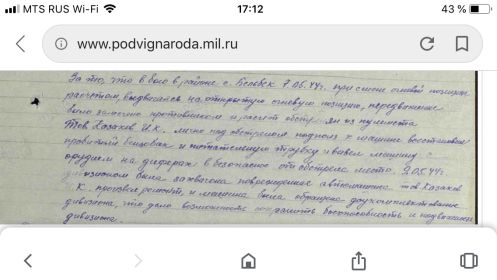 MTS RUS Wi-Fi 17:12 43 %
www.podvignaroda.mil.ru
За то, что в бою в районе с. 7.05.44г. при смене огневой позиции
расчетом, выдвигаясь на открытую огневую позицию, передвижение
было замечено противником и расчет из пулемета
Тов Казаков И.К. лично под обстрелом подполз к машине восстановил
пробитый и трубку и вывел машину с
орудием на в от обстрела место. 9.05.44г.
дивизионом была захвачена поврежденная автомашина тов Казаков
К. произвел ремонт, и машина была обращена
дивизиона, что дало возможность сохранить боеспособность и
дивизиона.